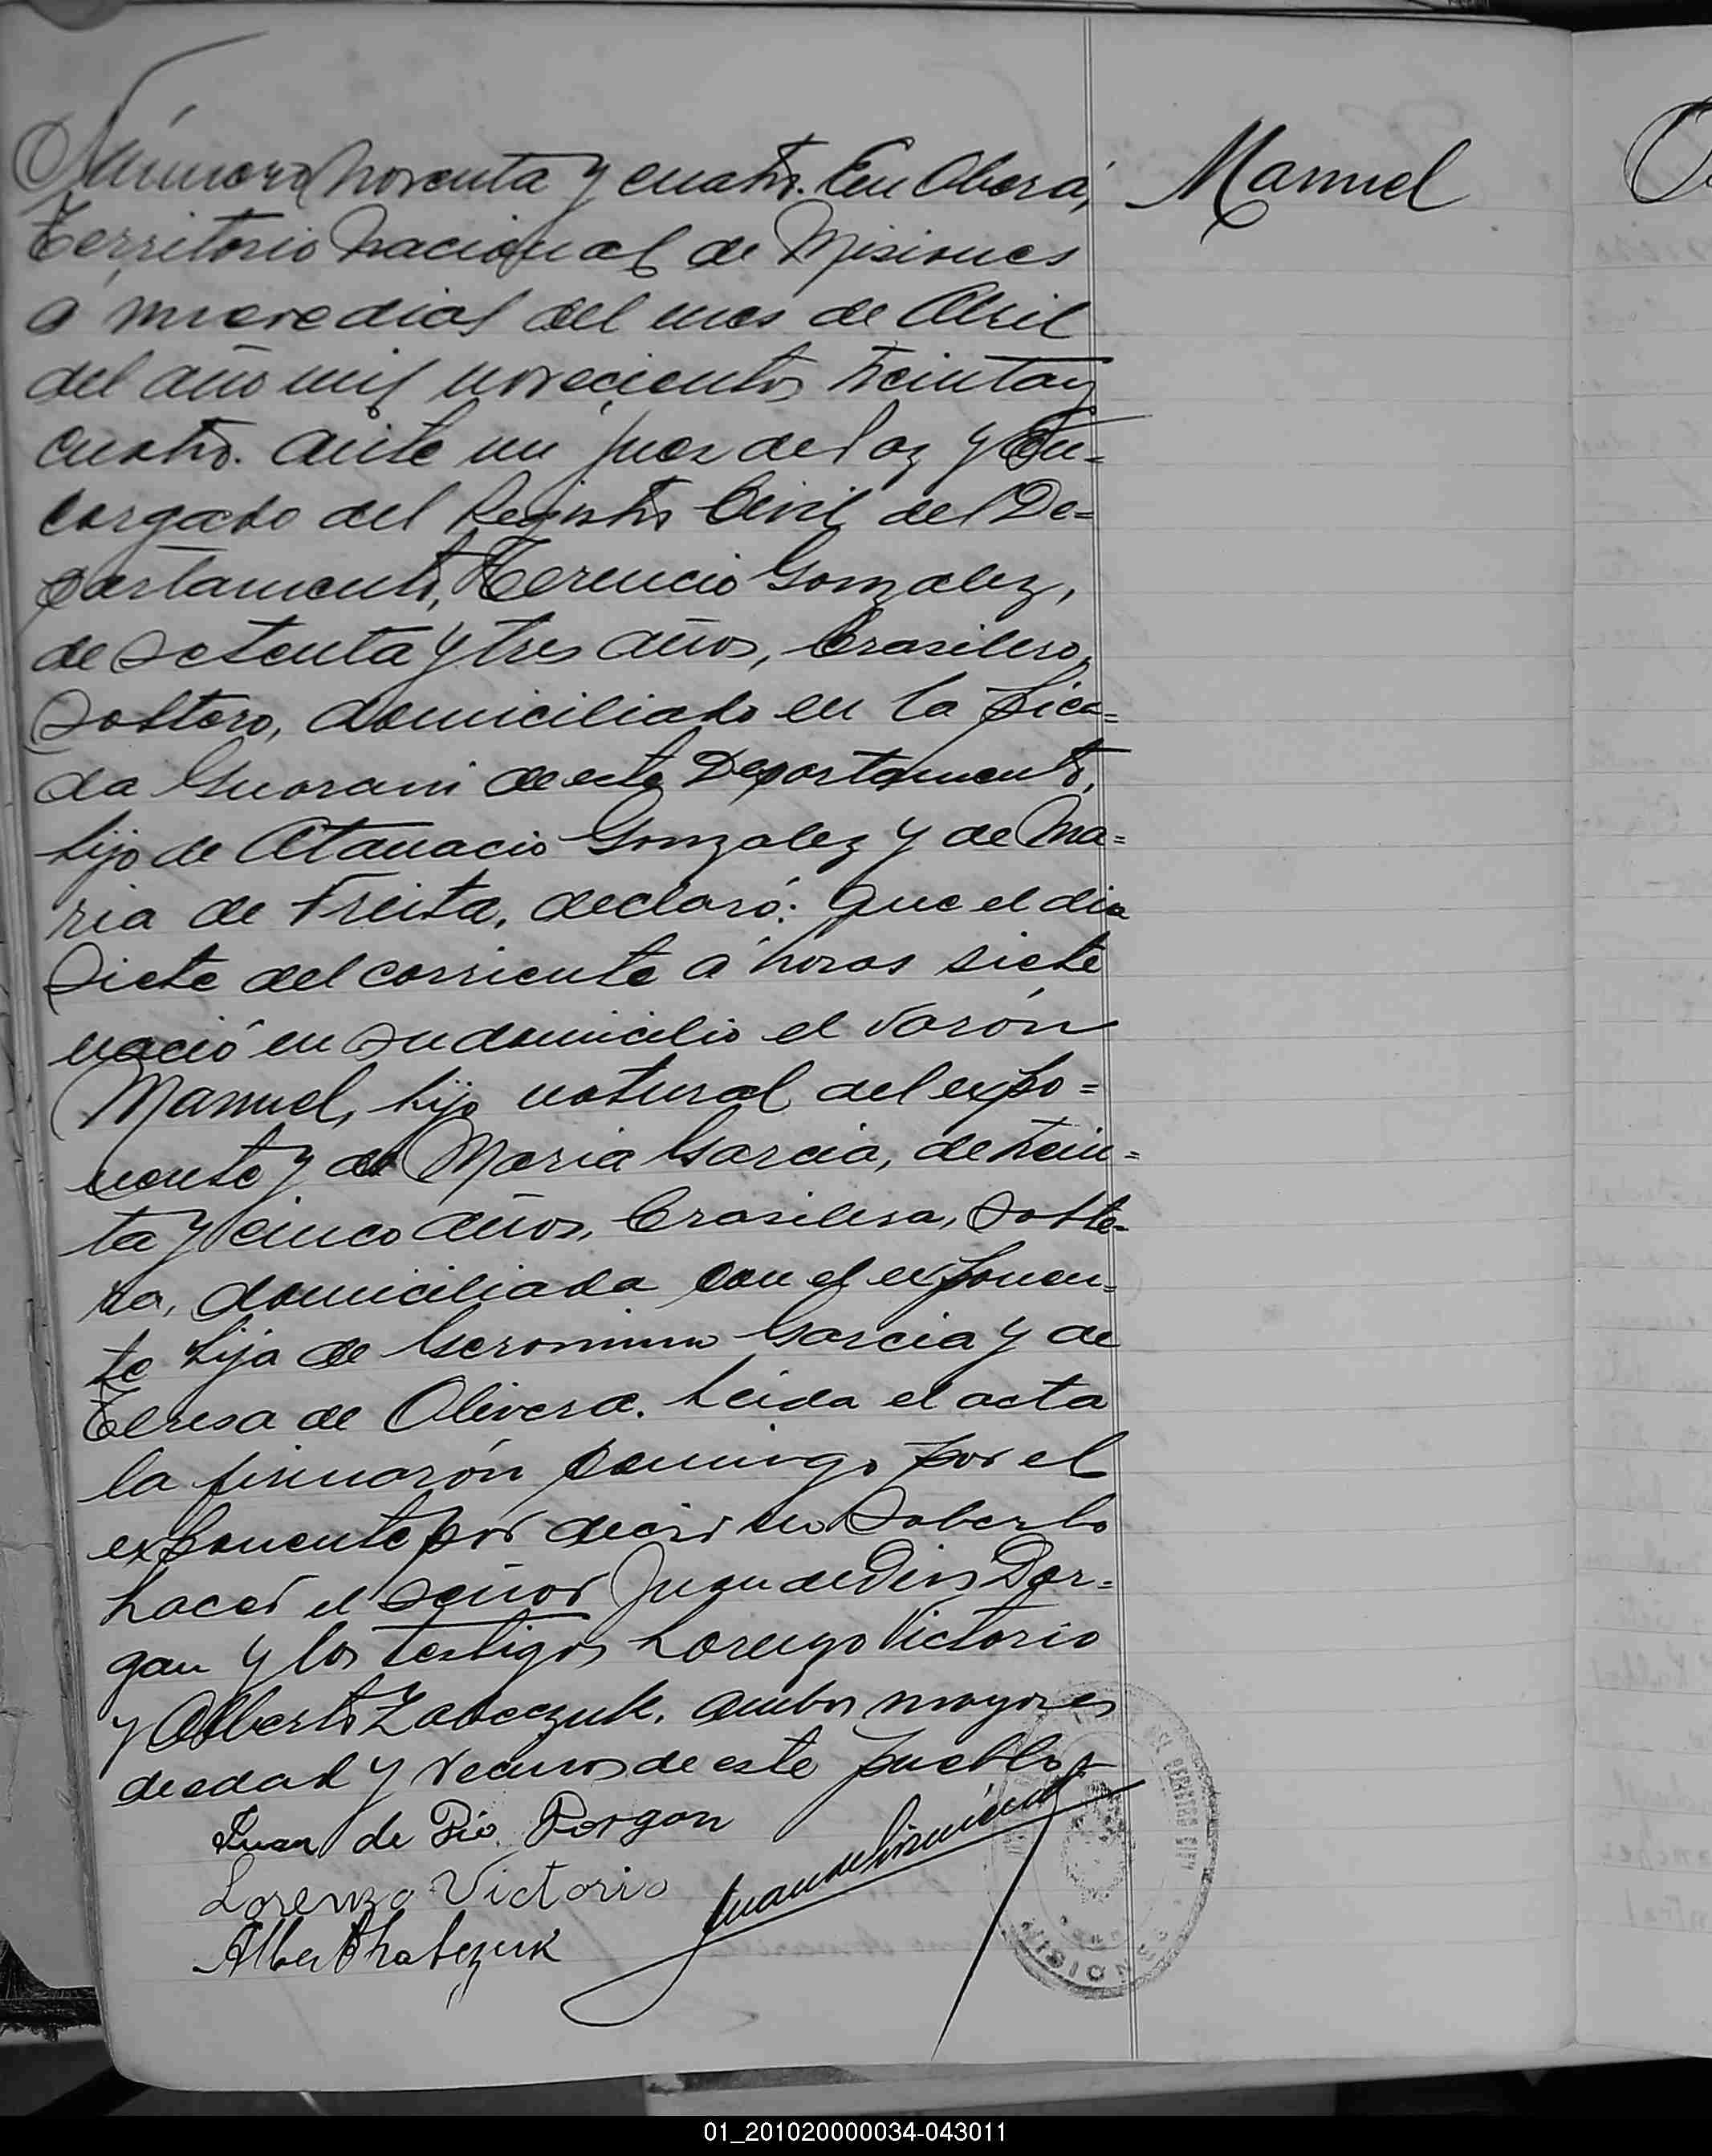 Número noventa y cuatro. En Oberá,
Territorio Nacional de Misiones
a nueve dias del mes de Abril
del año mil novecientos treinta y
cuatro. ante mi Juez de Paz y En-
cargado del Registro Civil del De-
partamento, Terencio Gonzalez,
de setenta y tres años, brasilero,
soltero, domiciliado en la pica-
da Guarani de este Departamento,
hijo de Atanacio Gonzalez y de Ma-
ria de Freita, declaró: Que el dia
siete del corriente á horas siete
nació en su domicilio el varón
Manuel, hijo natural del expo-
nente y de Maria Garcia, de trein-
ta y cinco años, brasilera, solte-
ra, domiciliada con el exponen-
te hija de Geronimo Garcia y de
Teresa de Olivera. Leida el acta
la firmarón conmigo por el
exponente por decir no saberlo
hacer el señor Juan de Dios Dor-
gan y los testigos Lorenzo Victorio
y Alberto Zabczuk, ambos mayores
de edad y vecinos de este pueblo
Juan de Dio Dorgan
Lorenzo Victorio
Manuel
MISIONES
01_201020000034-043011